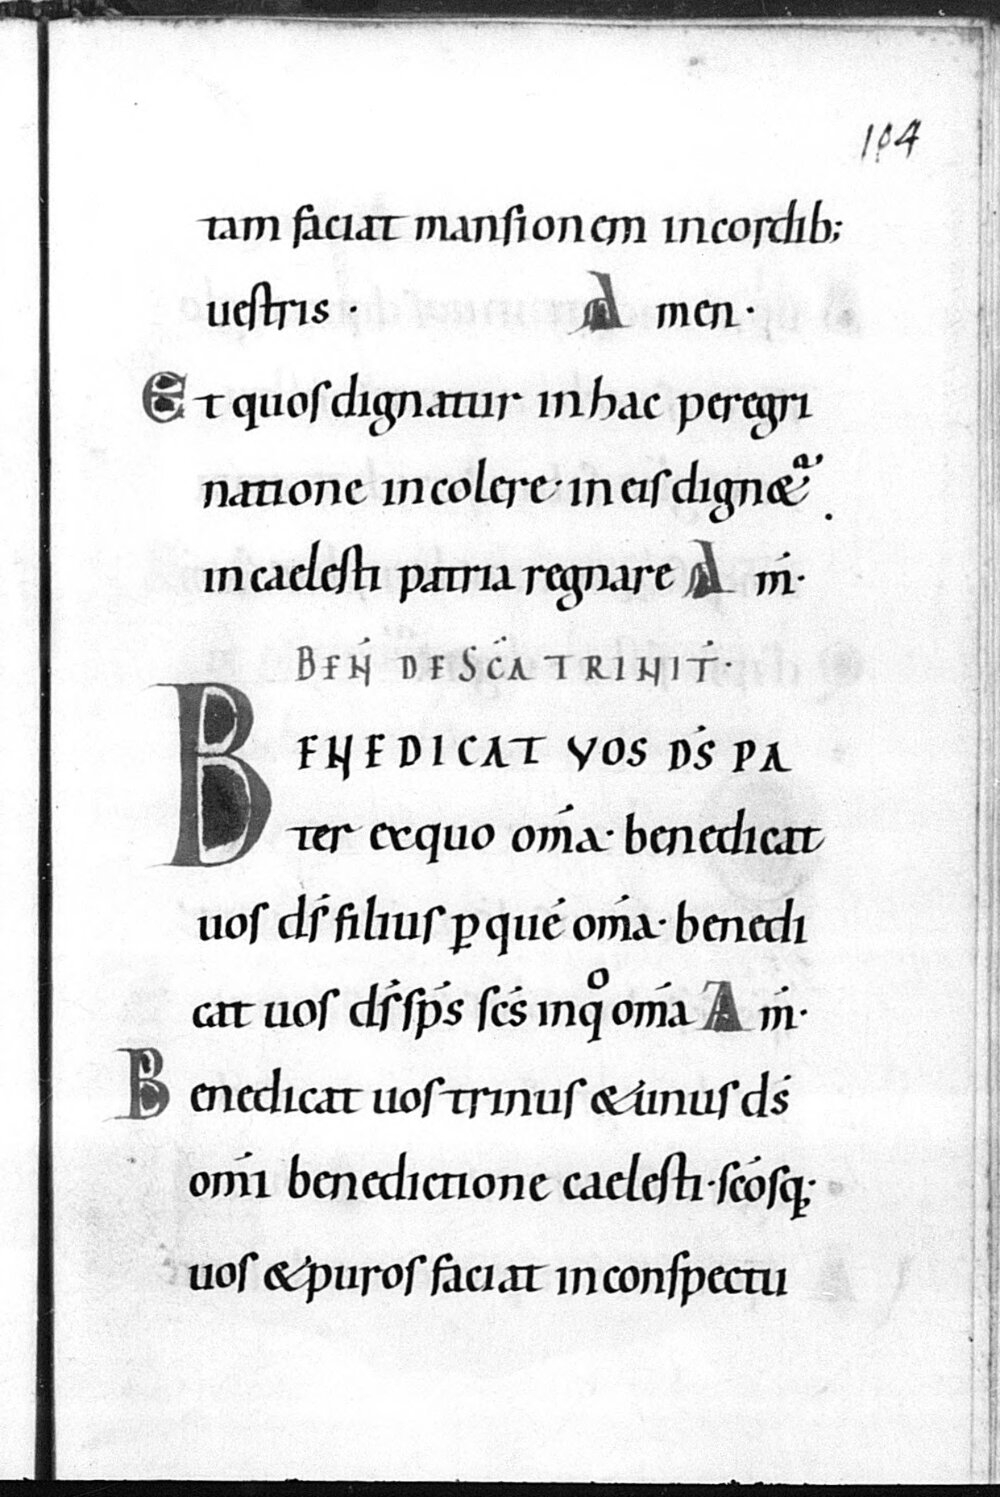 104
tam faciat mansionem in cordib;
uestris · Amen·
Et quos dignatur in hac peregri
natione incolere· in eis dign&ͣ'.
in caelesti patria regnare Am̄·
BEN̄ DE SC̄A TRINIT̄·
BENEDICAT VOS DS̄ PA
ter ex quo om̄a· benedicat
uos ds̄ filius ꝑ quē om̄a· benedi
cat uos ds̄ sp̄s sc̄s in qͦ om̄a Am̄·
Benedicat uos trinus & unus ds̄
om̄i benedictione caelesti· sc̄osq;
uos & puros faciat in conspectu